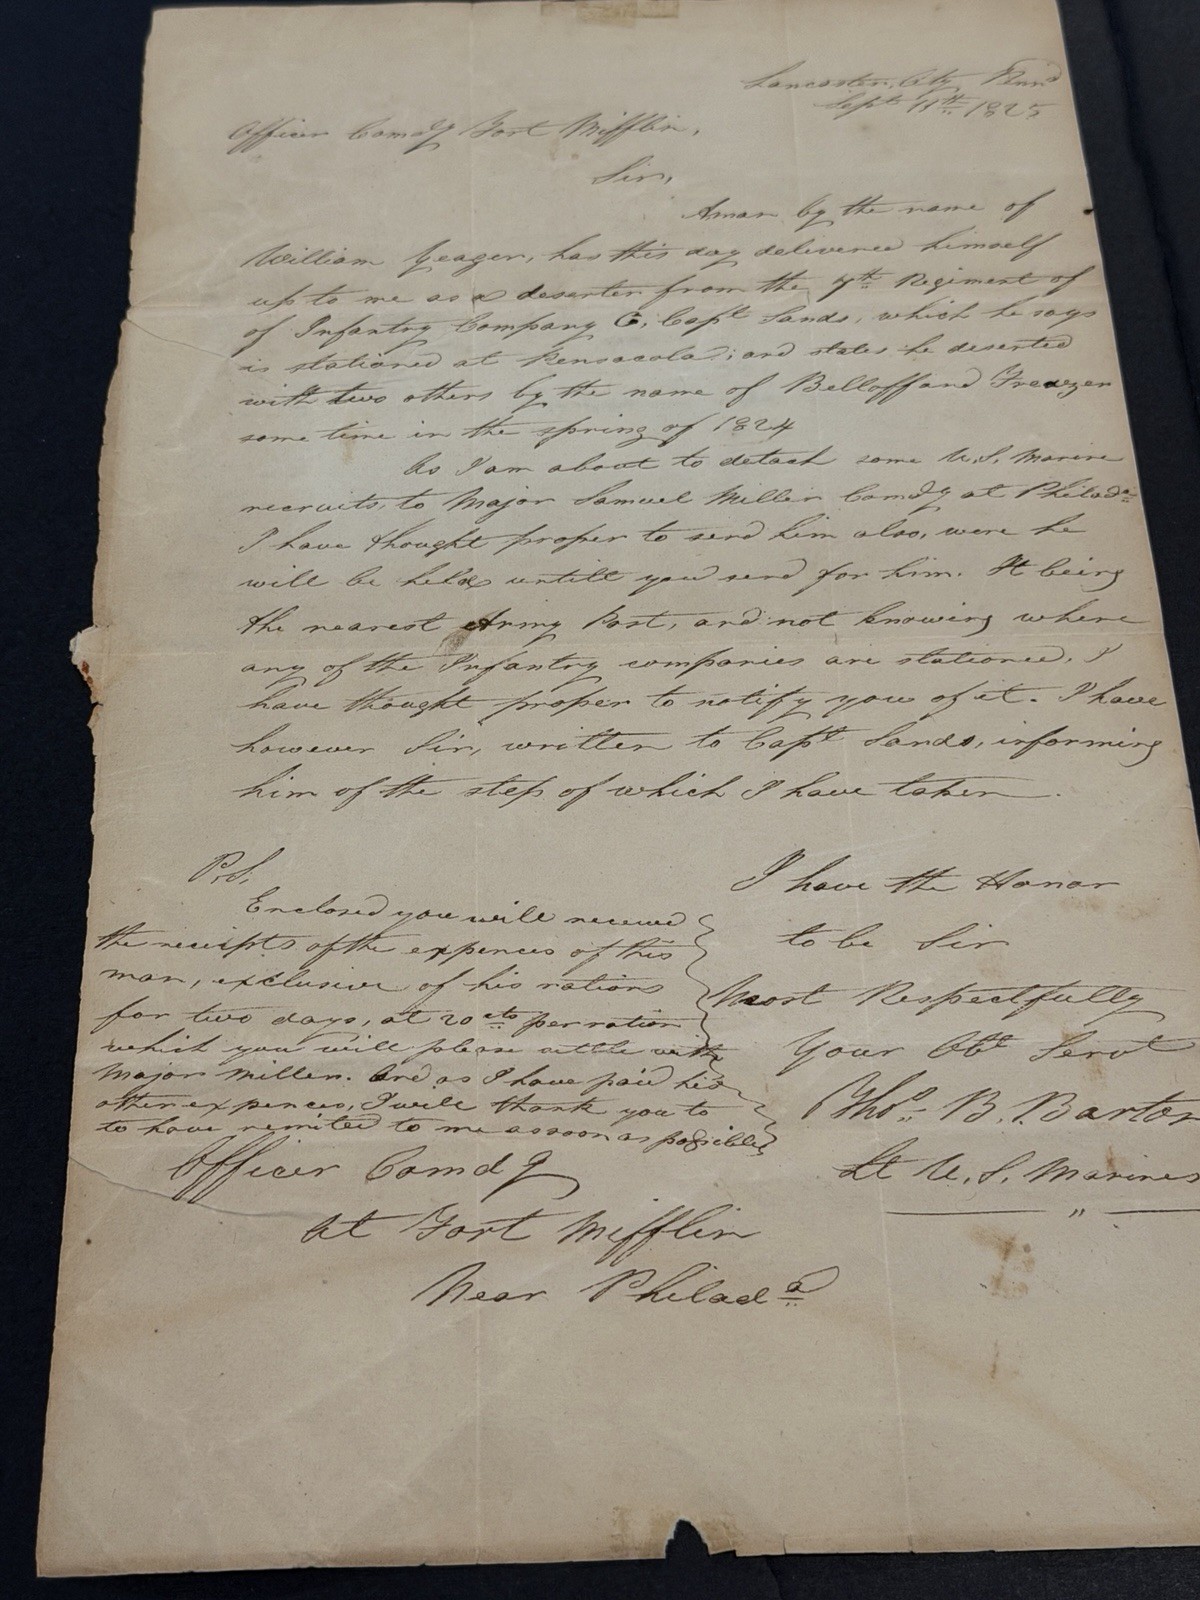 Lancaster, City, Penna
Sept 11th 1825
Officer Comdg Fort Mifflin,
Sir,
A man by the name of
William Yeager, has this day delivered himself
up to me as a deserter from the 4th Regiment of
of Infantry Company G, Capt Sands, which he says
is stationed at Pensacola; and states he deserted
with two others by the name of Belloff and
some time in the spring of 1824
As I am about to detach some U.S. Marine
recruits, to Major Samuel Miller Comdg at Philada
I have thought proper to send him also, were he
will be held untill you send for him. It being
the nearest Army Post, and not knowing where
any of the Infantry companies are stationed, I
have thought proper to notify you of it. I have
however Sir, written to Capt Sands, informing
him of the step of which I have taken.
P.S.
Enclosed you will received
the receipts of the expences of this
man, exclusive of his rations
for two days, at 20 cts per ration
which you will please settle with
Major Miller. And as I have paid his
other expences, I will thank you to
to have remited to me as soon as possible
I have the Honor
to be Sir
Most Respectfully
Your Obt Servt
Thos B. Barton
Lt U.S. Marines
"
Officer Comdg
at Fort Mifflin
Near Philada